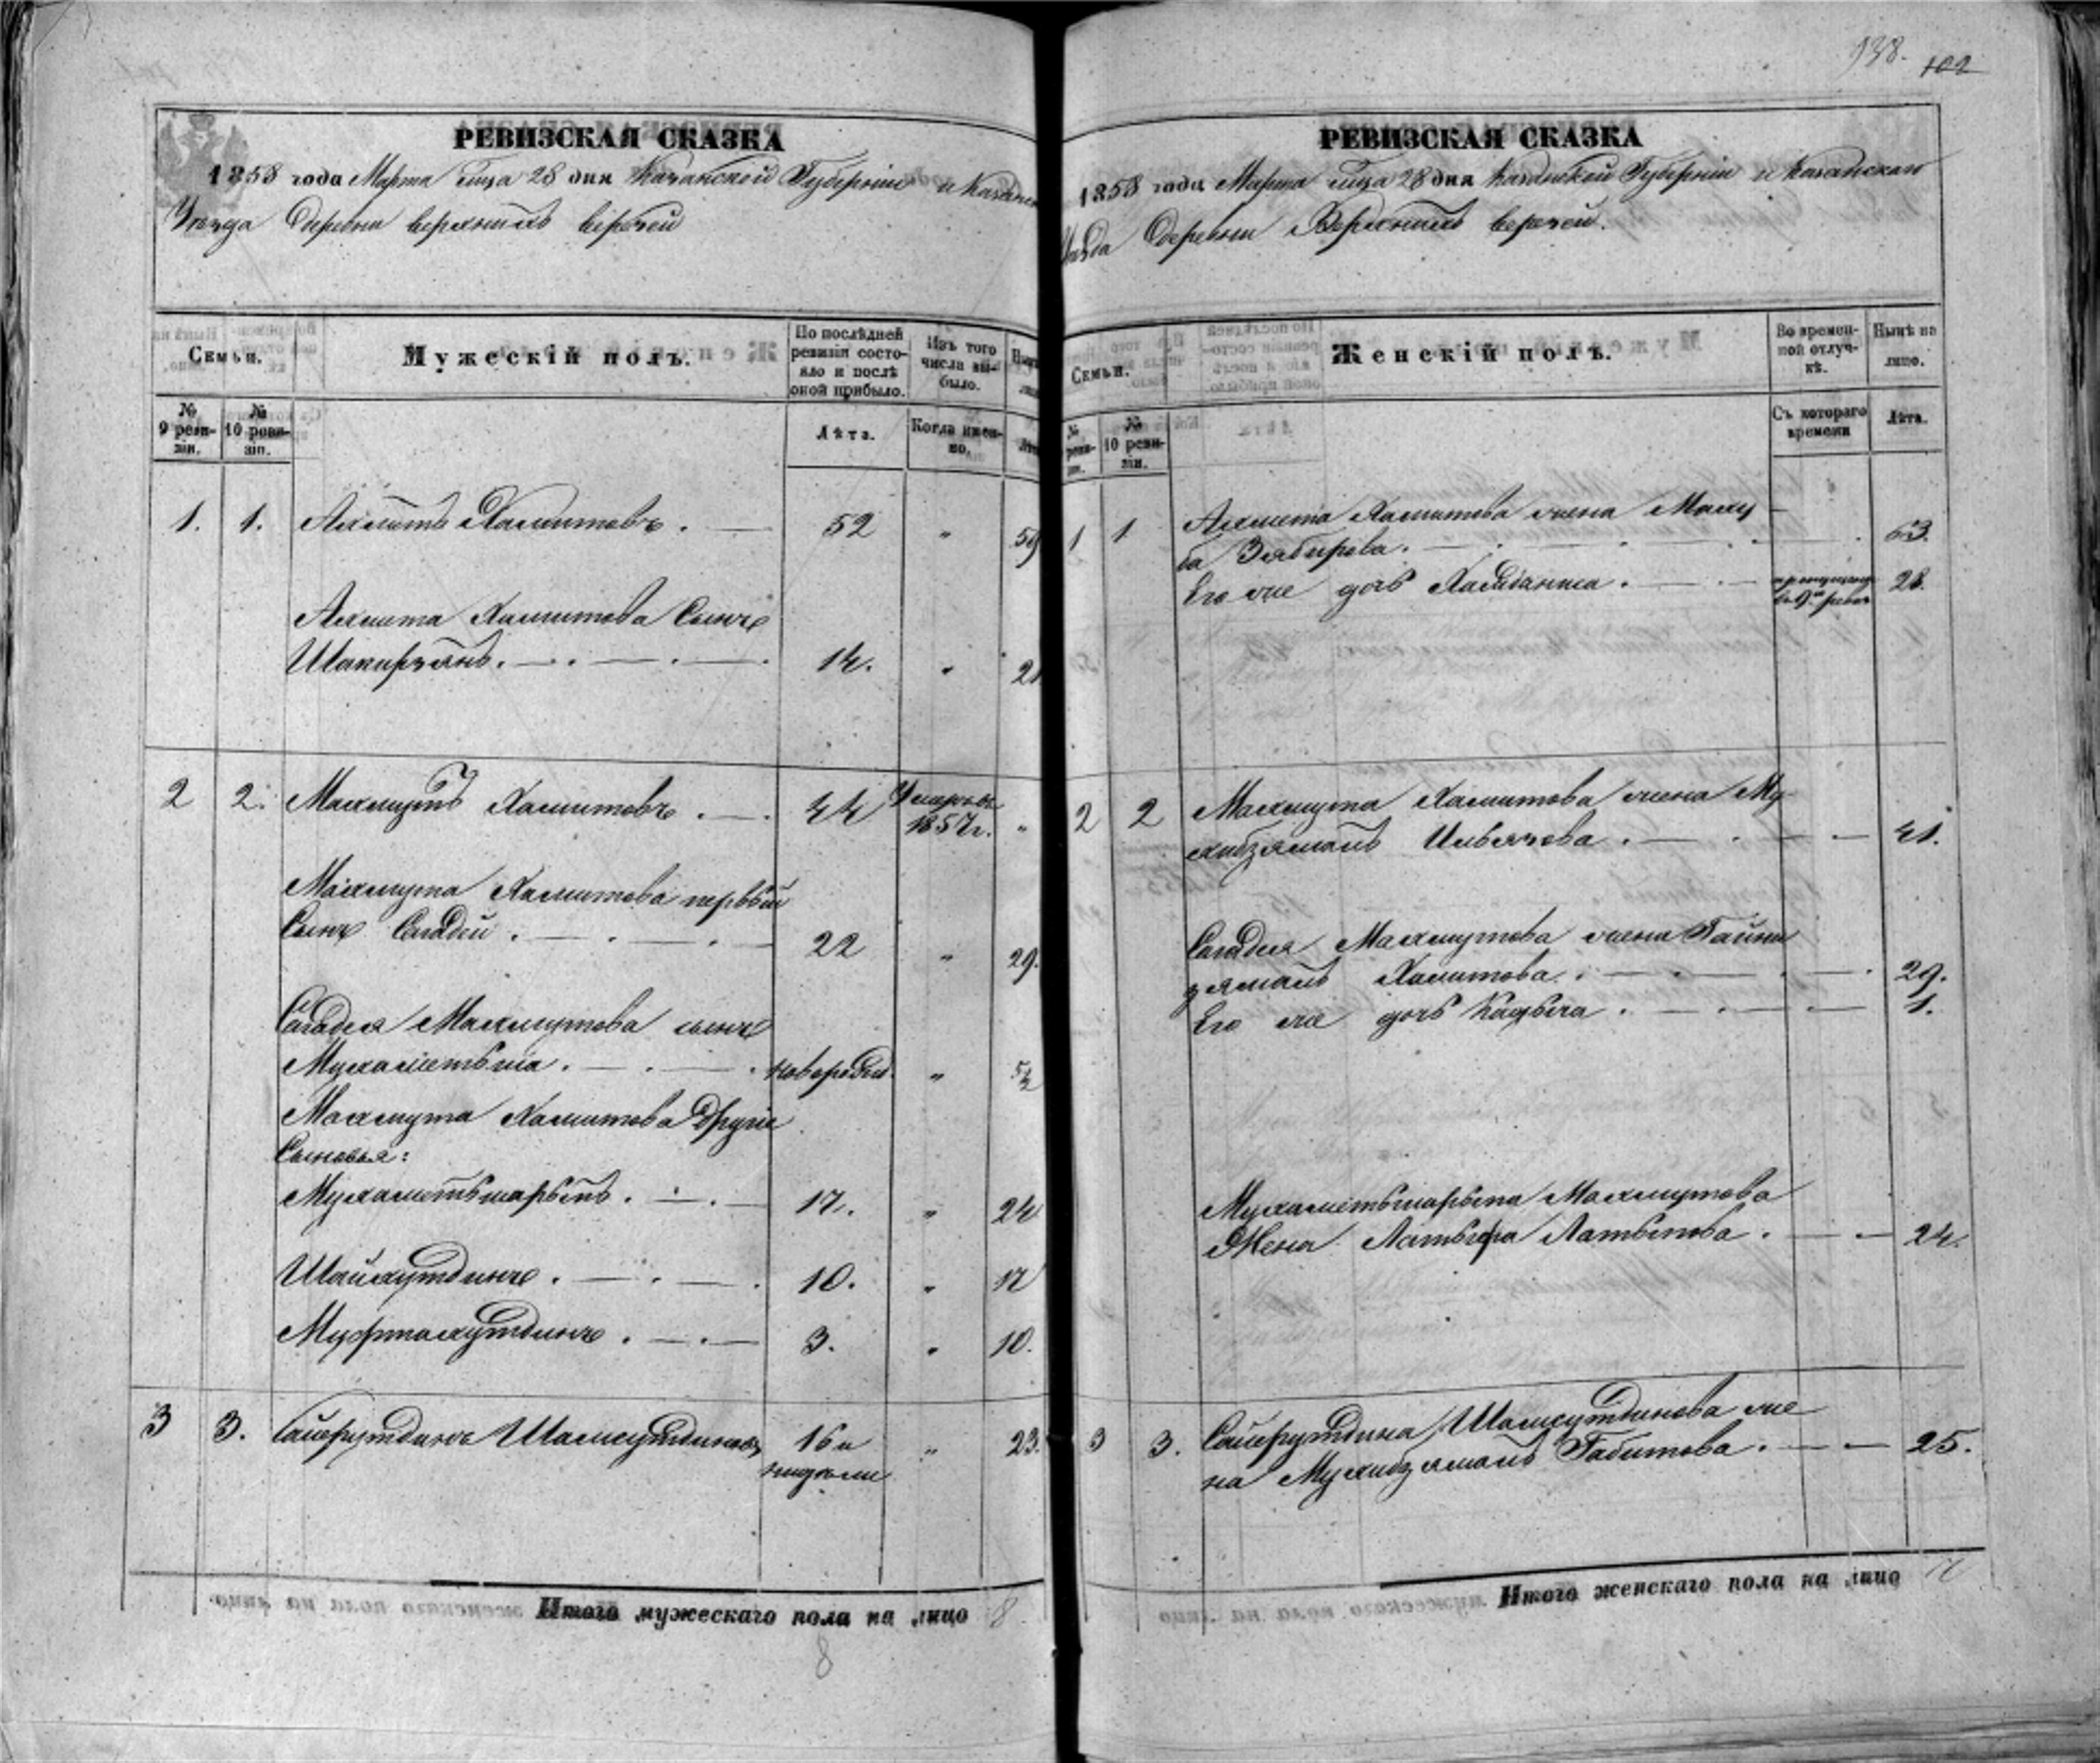 138. 102
РЕВИЗСКАЯ СКАЗКА
1858 года Марта мца 28 дня Казанской Губернии и Казанск
Уезда Деревни верхнихъ верезей
Семьи.
Мужескій полъ.
По послѣдней ревизіи состояло и послѣ оной прибыло.
Изъ того числа выбыло.
№ 9 ревизіи.
№ 10 ревизіи.
Лѣта.
Когда именно.
1. 1. Ахметъ Хамитовъ. 52 " 59
Ахмета Хамитова Сынъ
Шакирзянъ. 14. " 21
2 2. Махмутъ Хамитовъ. 44 Умеръ въ 1857 г. "
Махмута Хамитова первый
Сынъ Сагадей. 22 " 29.
Сагадея Махмутова сынъ
Мухаметьша. новорожд. "
Махмута Хамитова другие
Сыновья:
Мухаметьшарыпъ. 17. " 24
Шайхутдинъ. 10. " 17
Мифтахутдинъ. 3. " 10.
3 3. Сайфутдинъ Шамсутдиновъ 16 и " 23.
недѣли
Итого мужескаго пола на лицо 8
8
РЕВИЗСКАЯ СКАЗКА
1858 года Марта мца 28 дня Казанской Губернии и Казанскаго
Уѣзда Деревни Верхнихъ верезей.
Семьи.
Женскій полъ.
Во временной отлучкѣ.
Нынѣ на лицо.
№ 10 ревизіи.
Съ котораго времени
Лѣта.
1 1 Ахмета Хамитова жена Маху
ба Зябирова. 63.
Его же дочь пропущена въ 9й ревиз 28.
2 2 Махмута Хамитова жена Му
хибзямалъ Ильясова. 41.
Сагадея Махмутова жена Гайни
зямалъ Хамитова. 29.
Его же дочь Кадыча. 1.
Мухаметьшарыпа Махмутова
Жена Латыфа Латыпова. 24.
3 3. Сайфутдина Шамсутдинова же
на Мухибзямалъ Габитова. 25.
Итого женскаго пола на лицо